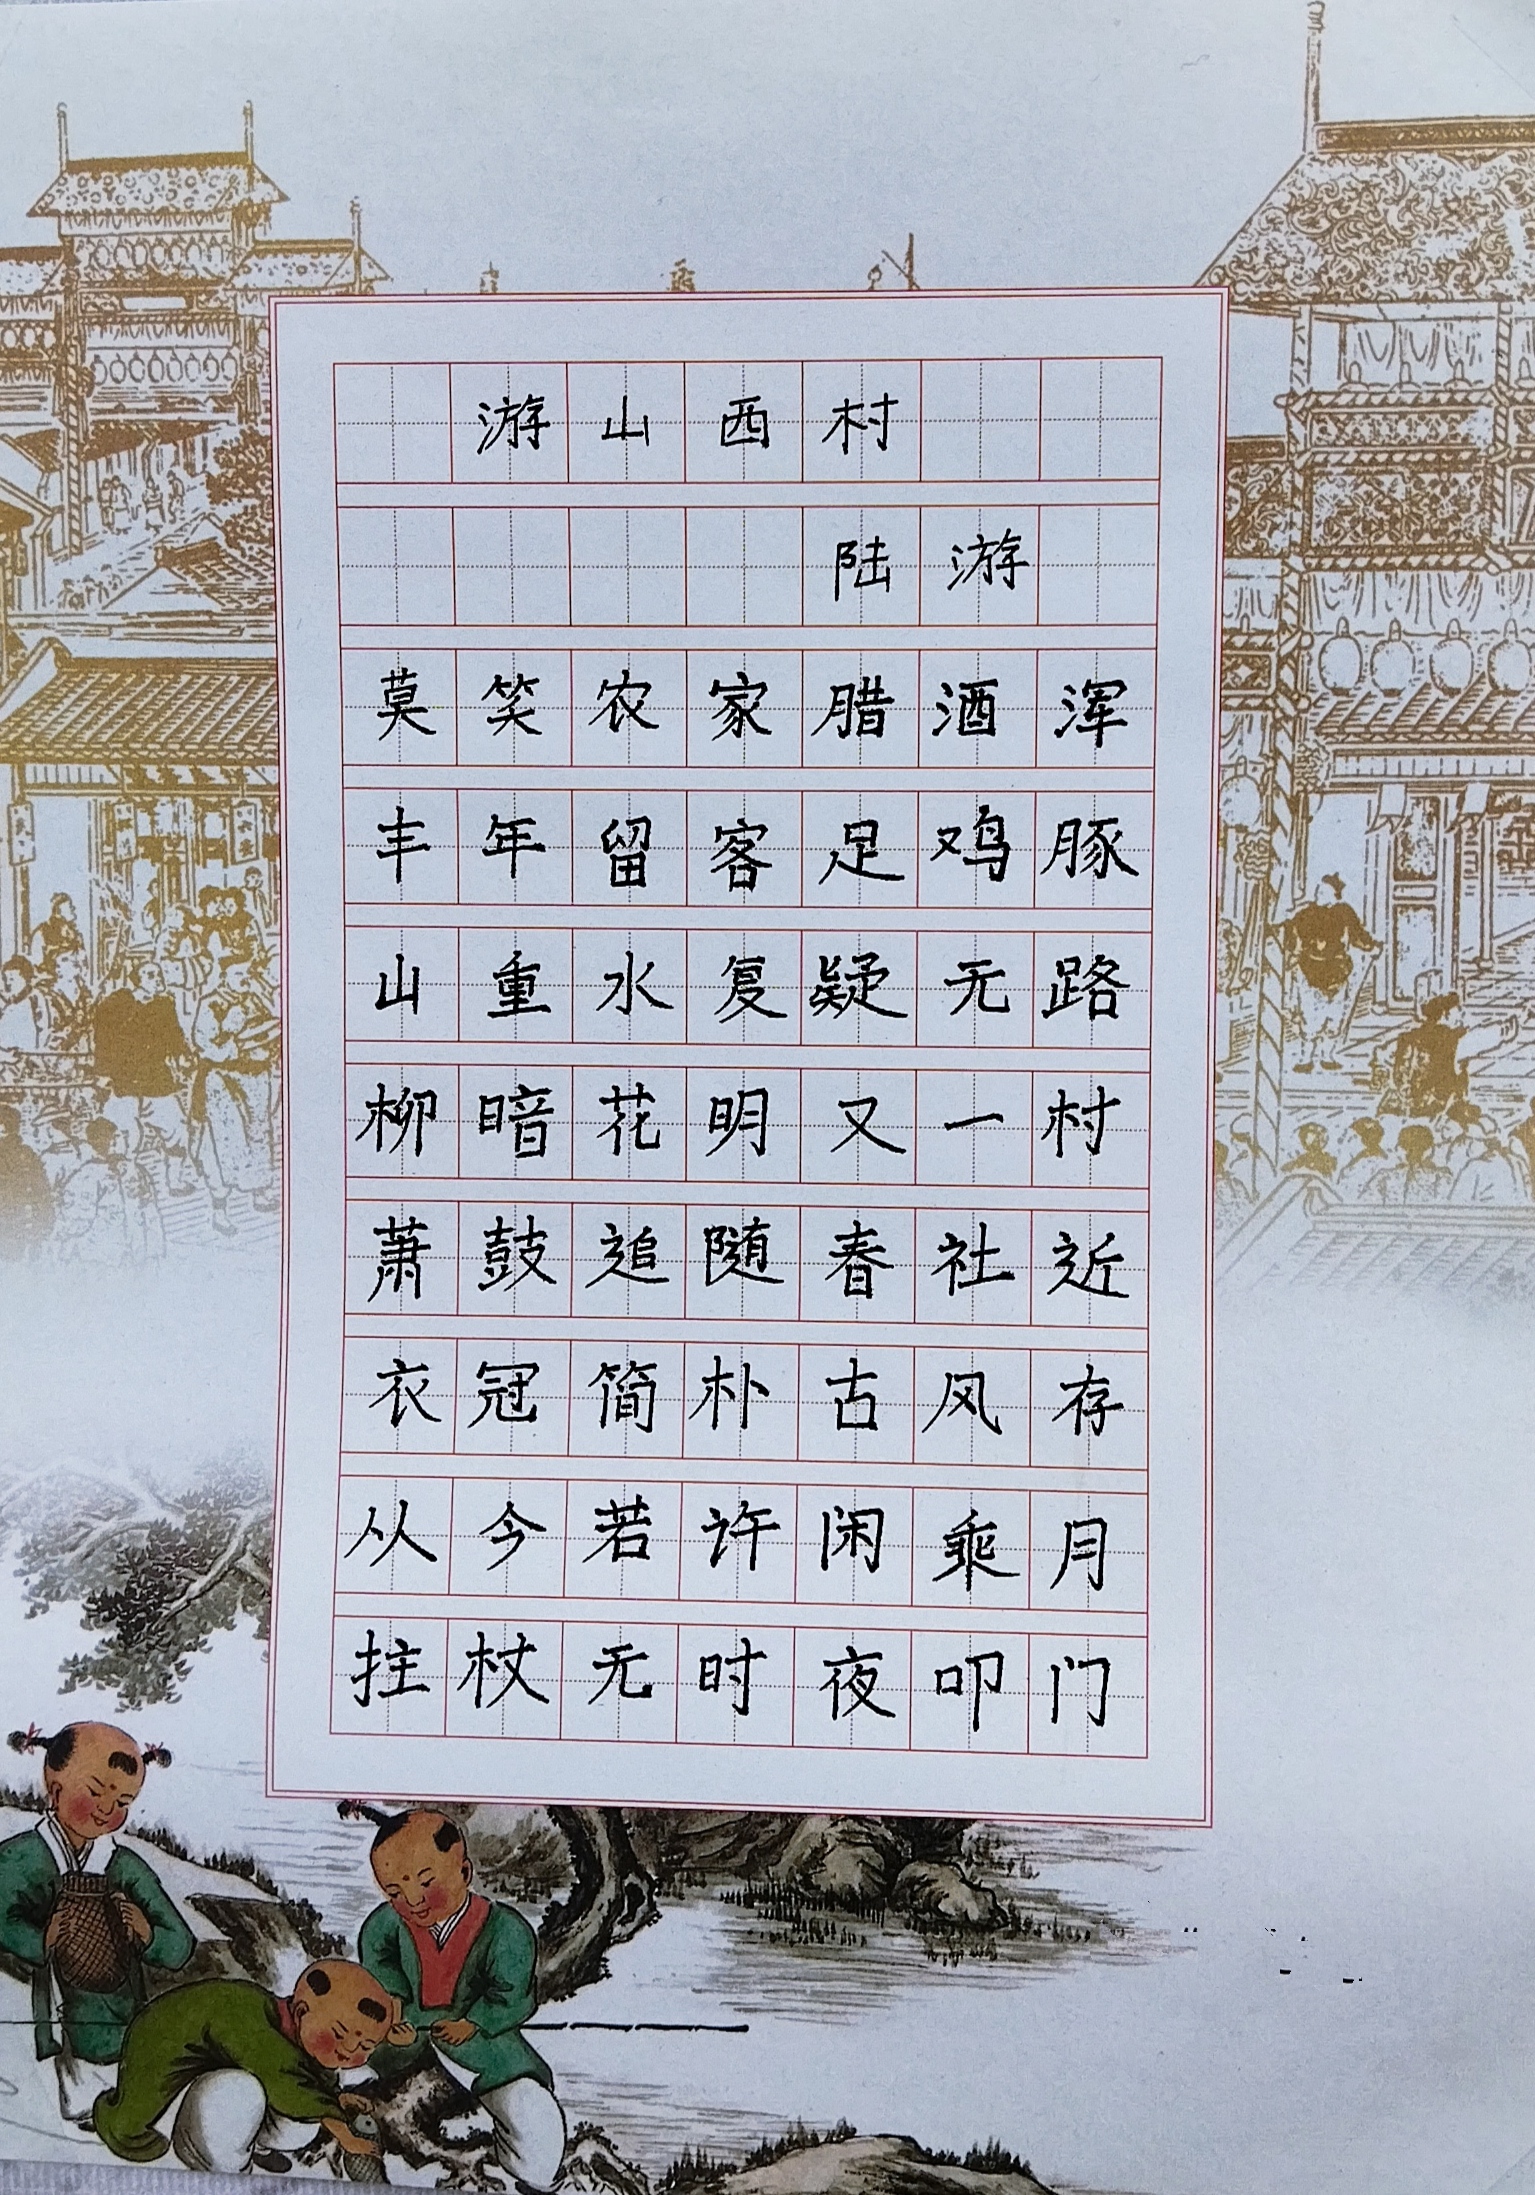 游山西村
陆游
莫笑农家腊酒浑
丰年留客足鸡豚
山重水复疑无路
柳暗花明又一村
萧鼓追随春社近
衣冠简朴古风存
从今若许闲乘月
拄杖无时夜叩门